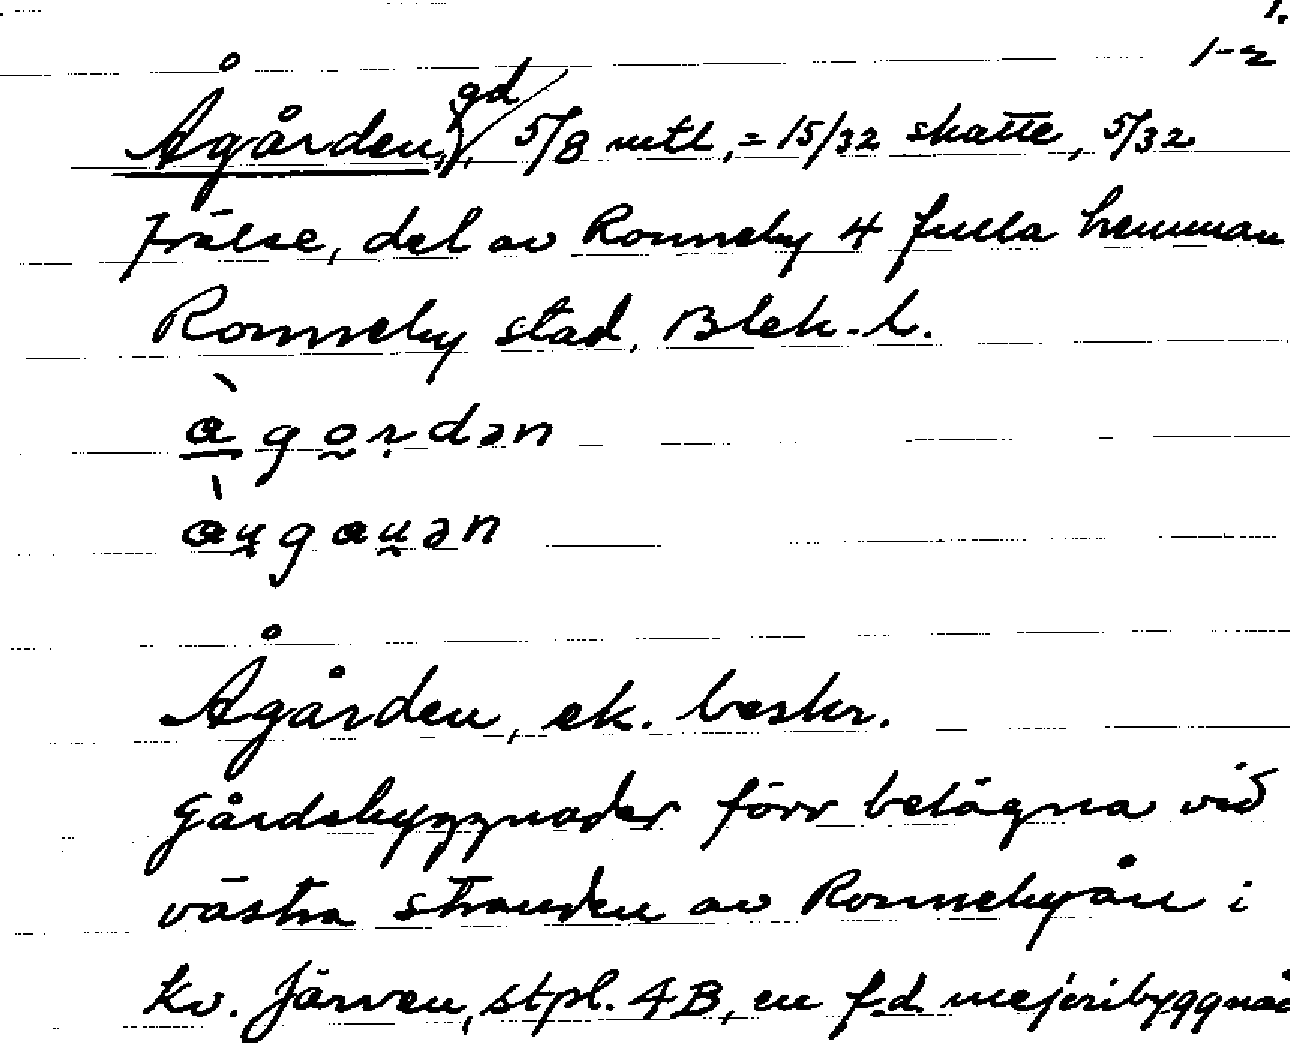 1.
1-2
Ågården, gd, 5/8 mtl, = 15/32 skatte, 5/32
frälse, del av Ronneby 4 fulla hemman
Ronneby stad, Blek. l.
Ågården, ek. beskr.
Gårdsbyggnader förr belägna vid
västra stranden av Ronnebyån i
kv. Järven, stpl. 4B, en f.d. mejeribyggnad